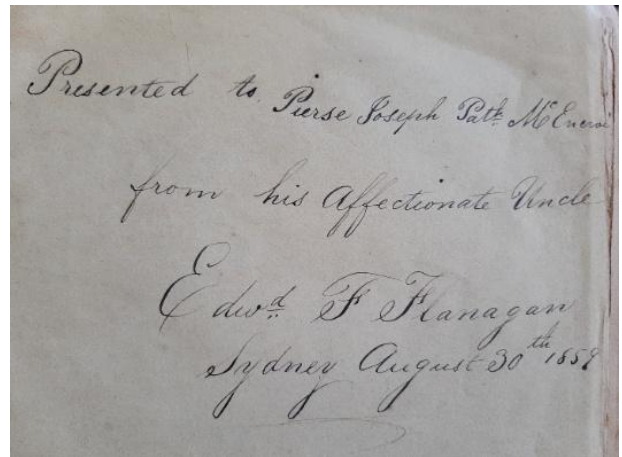 Presented to Pierse Joseph Patk McEncroe
from his Affectionate Uncle
Edwd F Flanagan
Sydney August 30th 1859